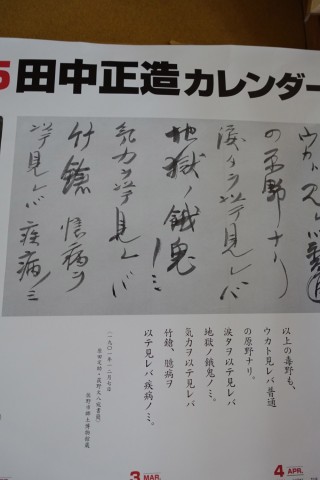 5 田中正造カレンダー
ウカト見レバ普通
の原野ナリ
涙タヲ以テ見レバ
地獄ノ餓鬼ノミ
気力ヲ以テ見レバ
竹鎗 臆病ヲ
以テ見レバ疾病ノミ
以上の毒野も、
ウカト見レバ普通
の原野ナリ。
涙タヲ以テ見レバ
地獄ノ餓鬼ノミ。
気力ヲ以テ見レバ
竹鎗、臆病ヲ
以テ見レバ疾病ノミ。
佐野市郷土博物館蔵
3 MAR.
4 APR.